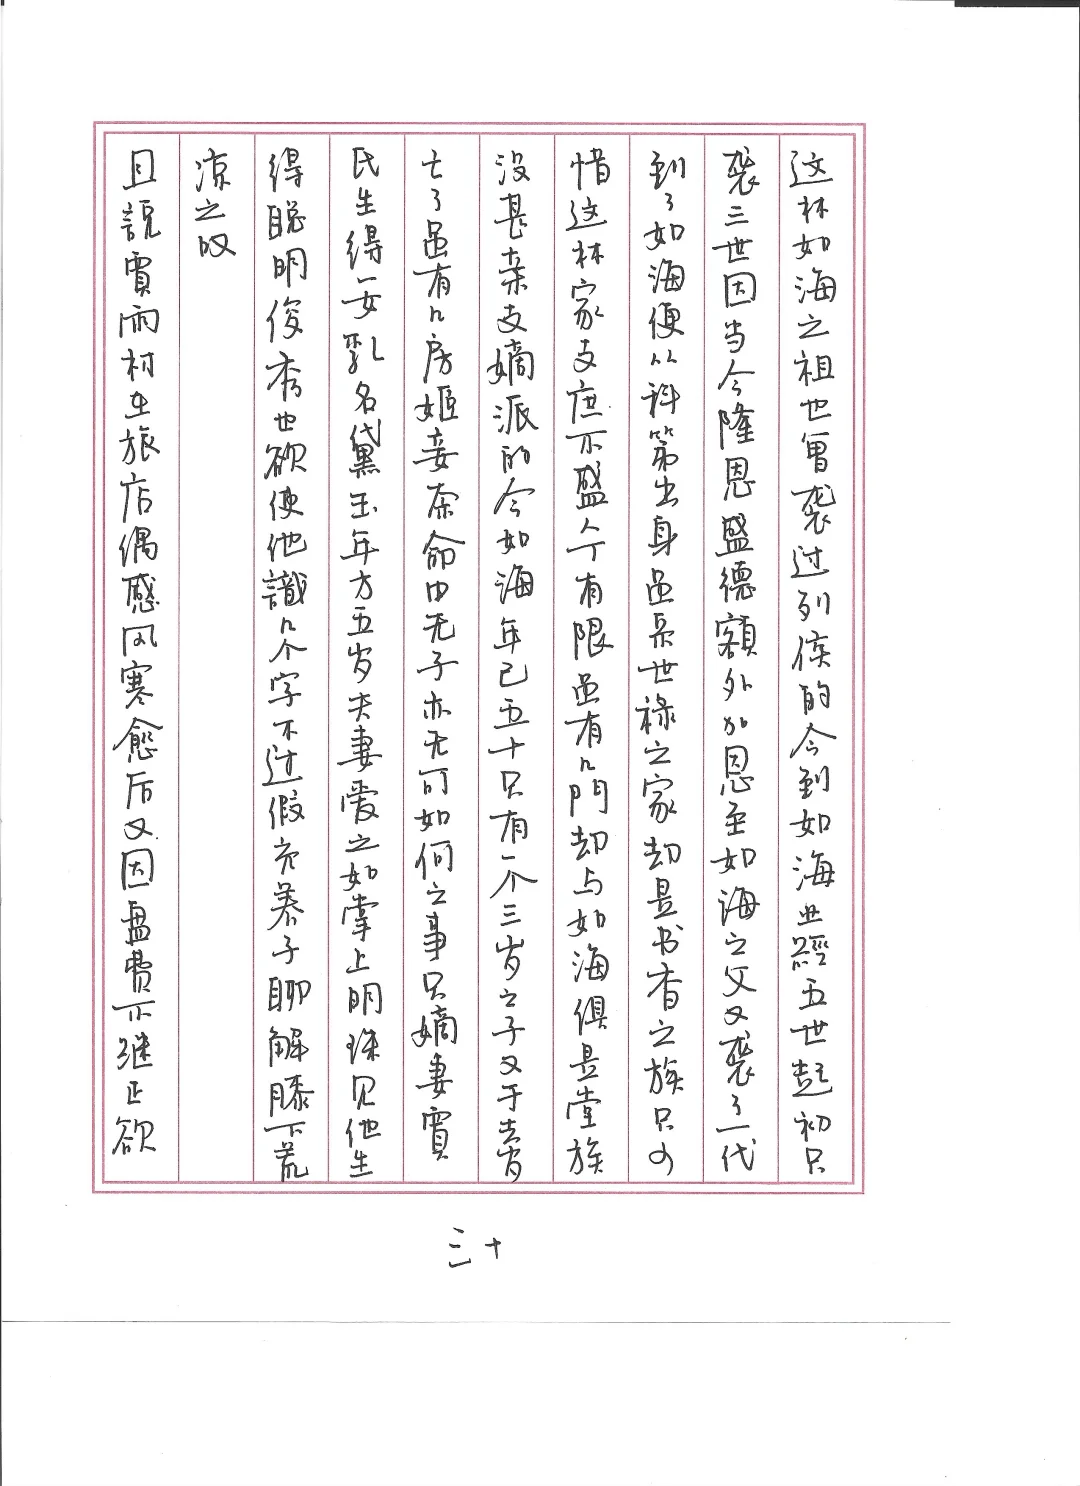 这林如海之祖也曾袭过列侯的今到如海业經五世起初只
袭三世因当今隆恩盛德額外加恩至如海之父又袭了一代
到了如海便以科第出身虽系世祿之家却是书香之族只可
惜这林家支庶不盛人丁有限虽有几門却与如海俱是堂族
没甚亲支嫡派的今如海年已五十只有一个三岁之子又于去岁
亡了虽有几房姬妾奈命中无子亦无可如何之事只嫡妻賈
氏生得一女乳名黛玉年方五岁夫妻爱之如掌上明珠见他生
得聪明俊秀也欲使他識几个字不过假充养子聊解膝下荒
凉之叹
且說賈雨村在旅店偶感风寒愈后又因盘费不继正欲
三十